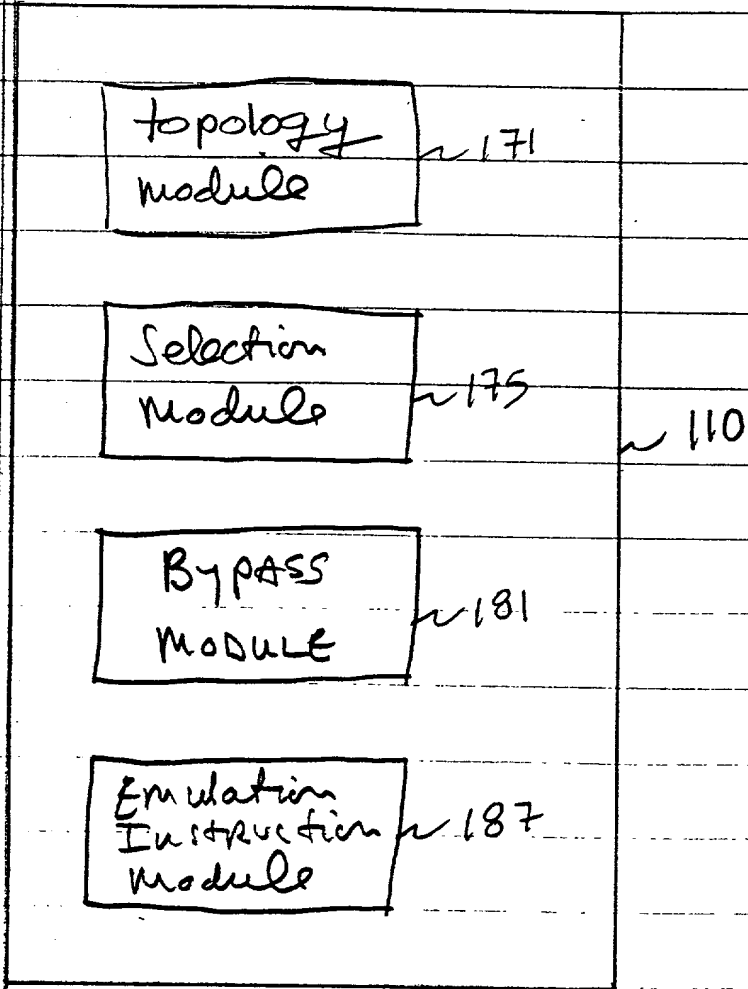 topology
module
171
Selection
module
175
110
BYPASS
MODULE
181
Emulation
Instruction
module
187